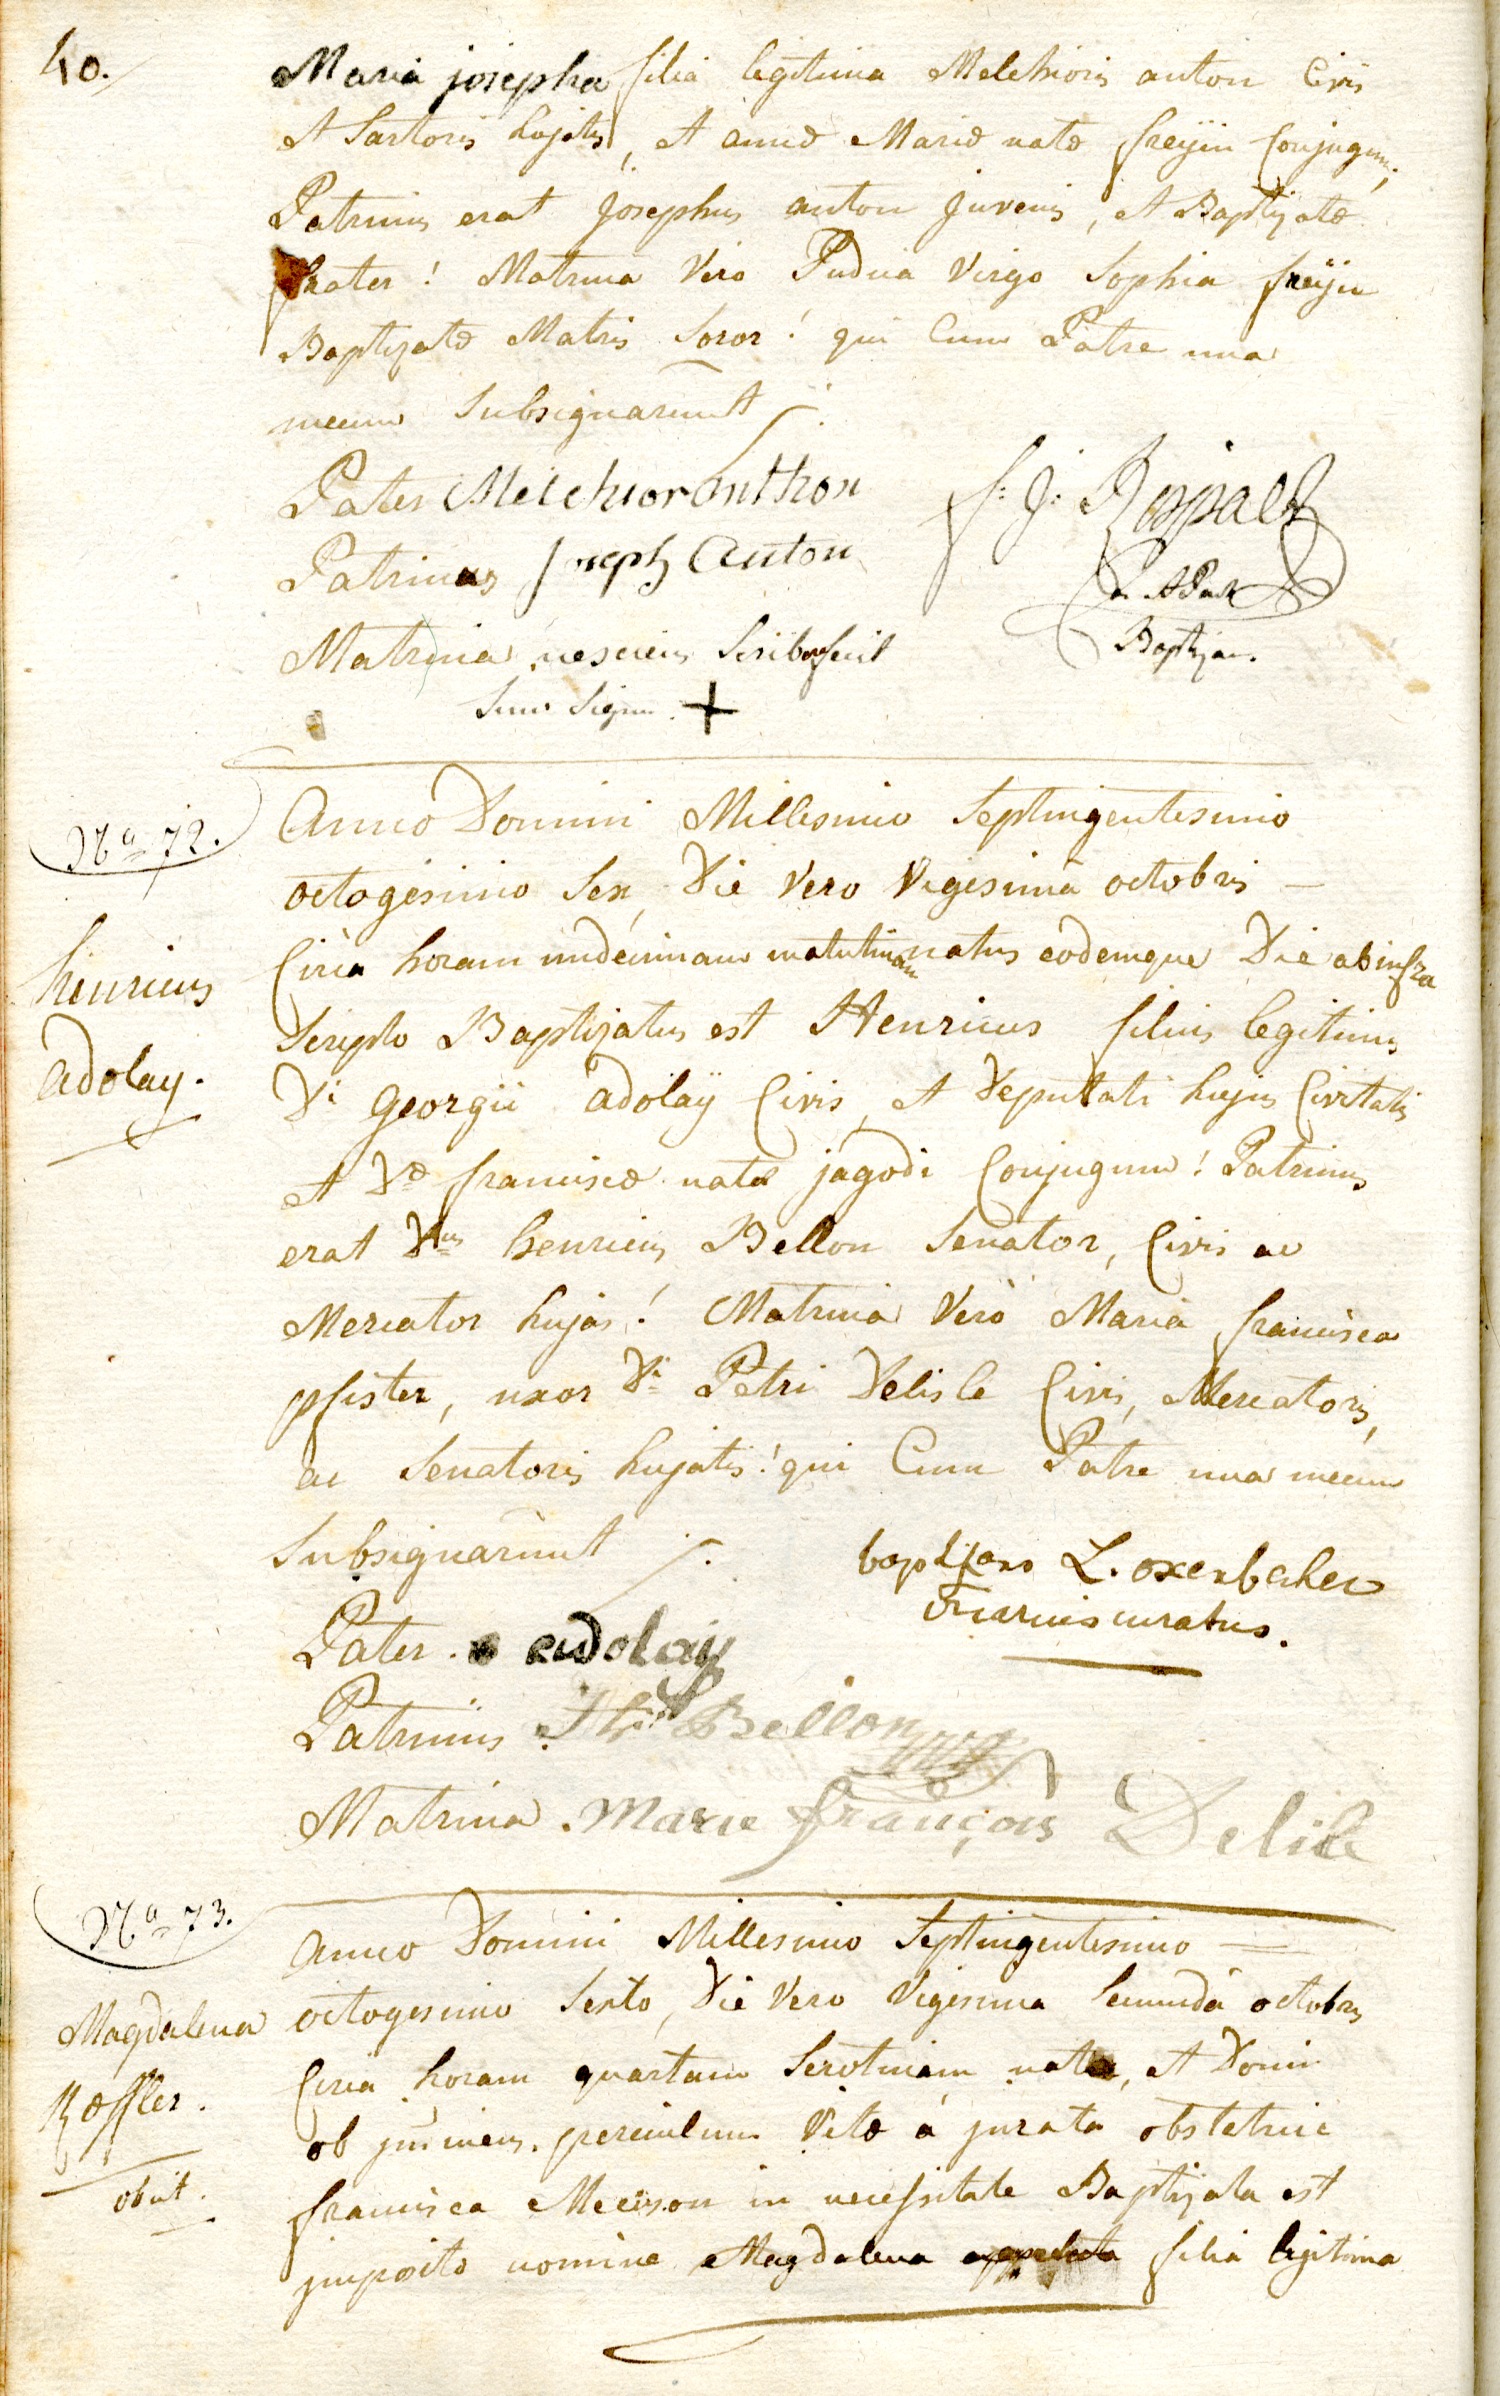 40.
Maria josepha filia legitima Melchioris anton Civis
et Sartoris hujatis, et annæ Mariæ natæ freyin Conjugum;
Patrinus erat Josephus anton juvenis, et Baptizatæ
frater! Matrina Vero Pudica Virgo Sophia freyin
Baptizatæ Matris Soror! qui Cum Patre una
mecum Subsignarunt ./.
Pater Melchior anthon
Patrinus Joseph Anton
Matrina nesciens Scribere fecit
Suum Signum. +
Baptizans.
Nº 72.
henricus
adolay.
Anno Domini Millesimo Septingentesimo
octogesimo Sex, Die Vero Vigesima octobris
Circa horam undecimam matutinam natus eodemque Die ab infra
Scripto Baptizatus est Henricus filius legitimus
Di Georgii adolaÿ Civis, et Deputati hujus Civitatis
et Dæ franciscæ natæ jagodi Conjugum! Patrinus
erat Dnus henricus Bellon Senator, Civis ac
Mercator hujas! Matrina Vero Maria francisca
pfister, uxor Di Petri Delisle Civis, Mercatoris,
ac Senatoris hujatis! qui Cum Patre una mecum
Subsignarunt ./.
baptizans L. oxenbecher
vicarius curatus.
Pater. adolaÿ
Patrinus Bellon
Matrina. Marie françois Delile
Nº 73.
Magdalena
Koffler.
obiit.
Anno Domini Millesimo Septingentesimo
octogesimo Sexto, Die Vero Vigesima Secunda octobris
Circa horam quartam Serotinam nata, et Domi
ob jminens. periculum Vitæ á jurata obstetrice
francisca Meison in necessitate Baptizata est
jmposito nomine Magdalena filia legitima